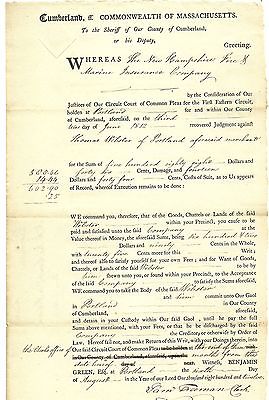 Cumberland, ss. COMMONWEALTH OF MASSACHUSETTS.
To the Sheriff of Our County of Cumberland,
or his Deputy,
Greeting.
WHEREAS The New Hampshire Fire &
Marine Insurance Company
by the Consideration of Our
Justices of our Circuit Court of Common Pleas for the First Eastern Circuit,
holden at Portland for and within Our County
of Cumberland, aforesaid, on the third
day of June 1812 recovered Judgment against
Thomas Webster of Portland aforesaid merchant
for the Sum of five hundred eighty eight Dollars and
forty six Cents, Damage, and fourteen
Dollars and forty four Cents, Costs of Suit, as to Us appears
of Record, whereof Execution remains to be done:
588.46
14.44
602.90
25
WE command you, therefore, that of the Goods, Chattels or Lands of the said
Webster within your Precinct, you cause to be
paid and satisfied unto the said Company at the
Value thereof in Money, the aforesaid Sums, being six hundred & two
Dollars and ninety Cents in the Whole,
with twenty five Cents more for this Writ; and
thereof also to satisfy yourself for your own Fees; and for Want of Goods,
Chattels, or Lands of the said Webster
to be by him shewn unto you, or found within your Precinct, to the Acceptance
of the said Company to satisfy the Sums aforesaid,
WE command you to take the Body of the said Webster
and him commit unto our Gaol
in Portland in Our County of Cumberland,
and detain in your Custody within Our said Gaol, until he pay the
full Sums above mentioned, with your Fees, or that he be discharged by the
said Company the Creditor, or otherwise by Order of
Law. Hereof fail not, and make Return of this Writ, with your Doings therein, into
the Clerks office of Our said Circuit Court of Common Pleas
in Our County of Cumberland, aforesaid, months from the
date hereof Witness, BENJAMIN
GREEN, Esq. at Portland the sixth Day
of August in the Year of our Lord One thousand eight hundred and twelve
Sam Freeman Clerk